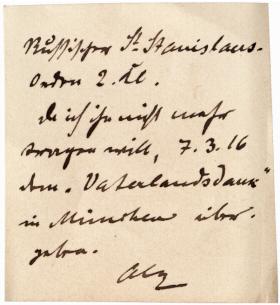 Russischer St. Stanislaus-
Orden 2. Kl.
da ich ihn nicht mehr
tragen will, 7.3.16
dem „Vaterlandsdank“
in München über-
geben.